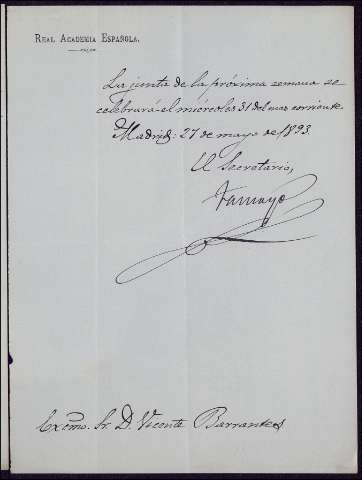 REAL ACADEMIA ESPAÑOLA.
La junta de la próxima semana se
celebrará el miércoles 31 del mes corriente.
Madrid: 27 de mayo de 1893.
El Secretario,
Tamayo
Excmo. Sr. D. Vicente Barrantes